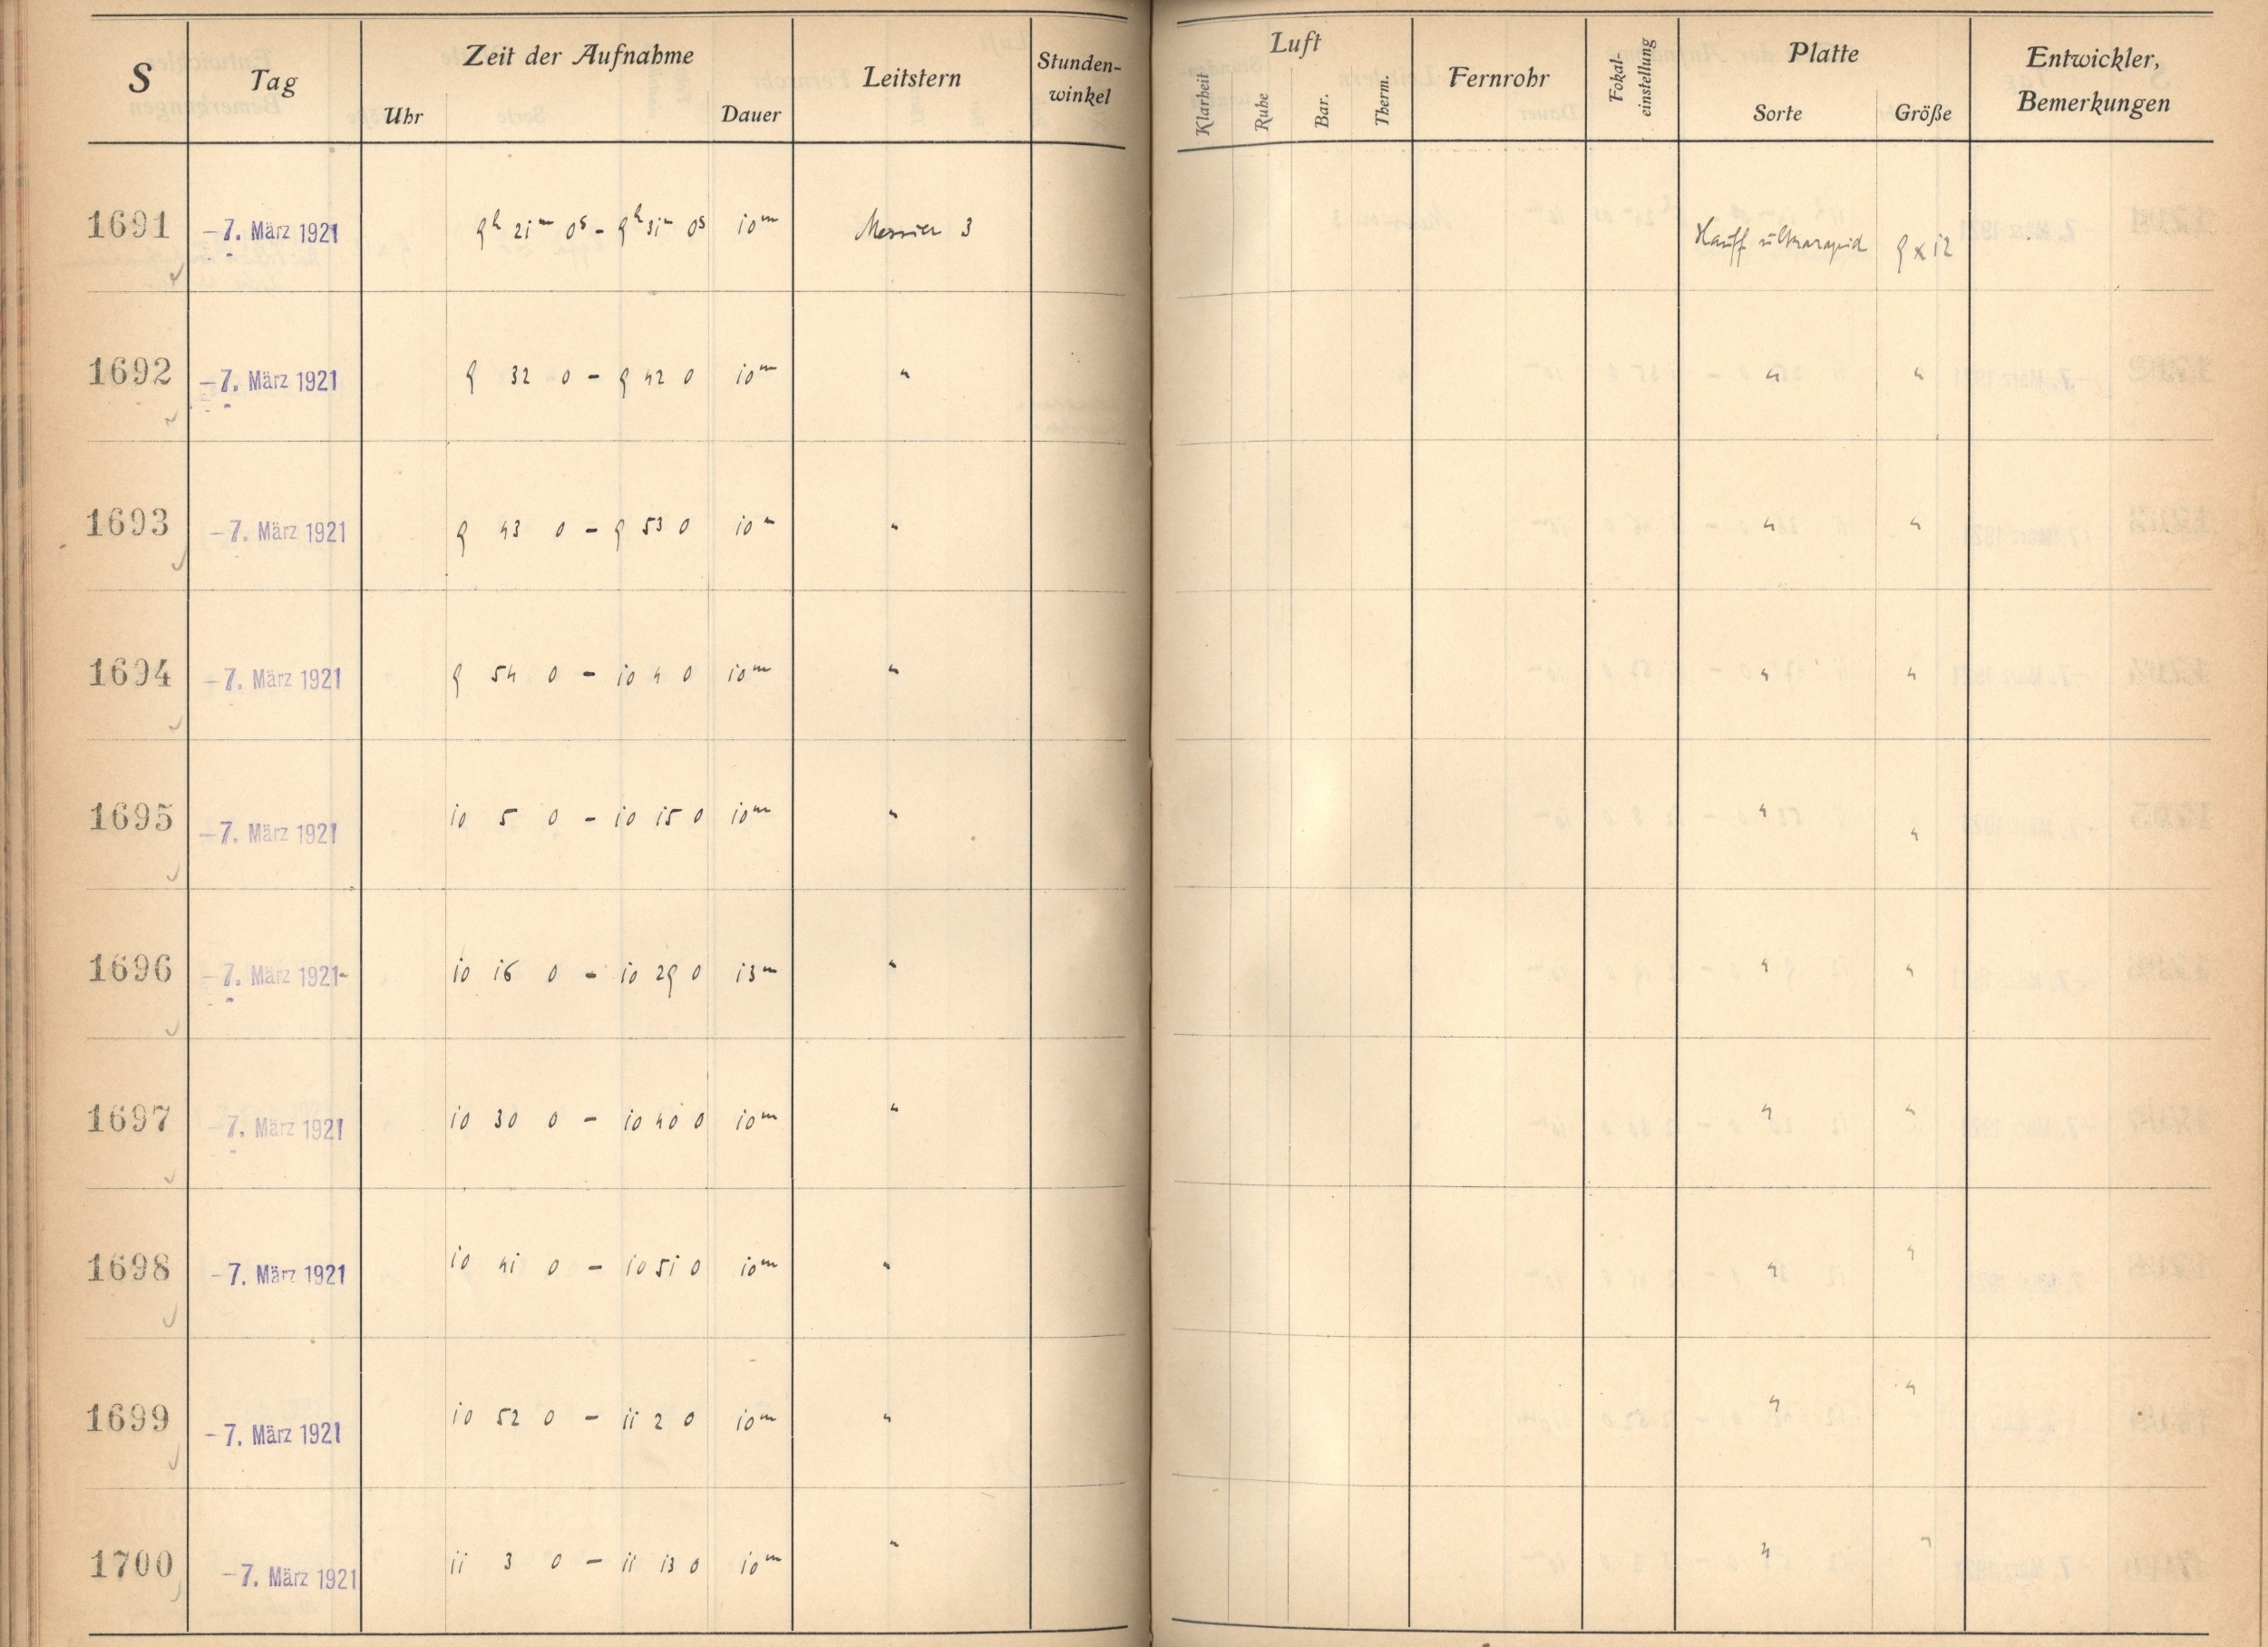 S Tag Zeit der Aufnahme Leitstern Stunden-winkel Luft Fernrohr Fokal-einstellung Platte Entwickler, Bemerkungen
Uhr Dauer Klarheit Ruhe Bar. Therm. Sorte Größe
1691 -7. März 1921 9h 21m 0s - 9h 31m 0s 10m Messier 3 Hauff ultrarapid 9 x 12
1692 -7. März 1921 9 32 0 - 9 42 0 10m " " "
1693 -7. März 1921 9 43 0 - 9 53 0 10m " " "
1694 -7. März 1921 9 54 0 - 10 4 0 10m " " "
1695 -7. März 1921 10 5 0 - 10 15 0 10m " " "
1696 -7. März 1921- 10 16 0 - 10 29 0 13m " " "
1697 -7. März 1921 10 30 0 - 10 40 0 10m " " "
1698 -7. März 1921 10 41 0 - 10 51 0 10m " " "
1699 -7. März 1921 10 52 0 - 11 2 0 10m " " "
1700 -7. März 1921 11 3 0 - 11 13 0 10m " " "